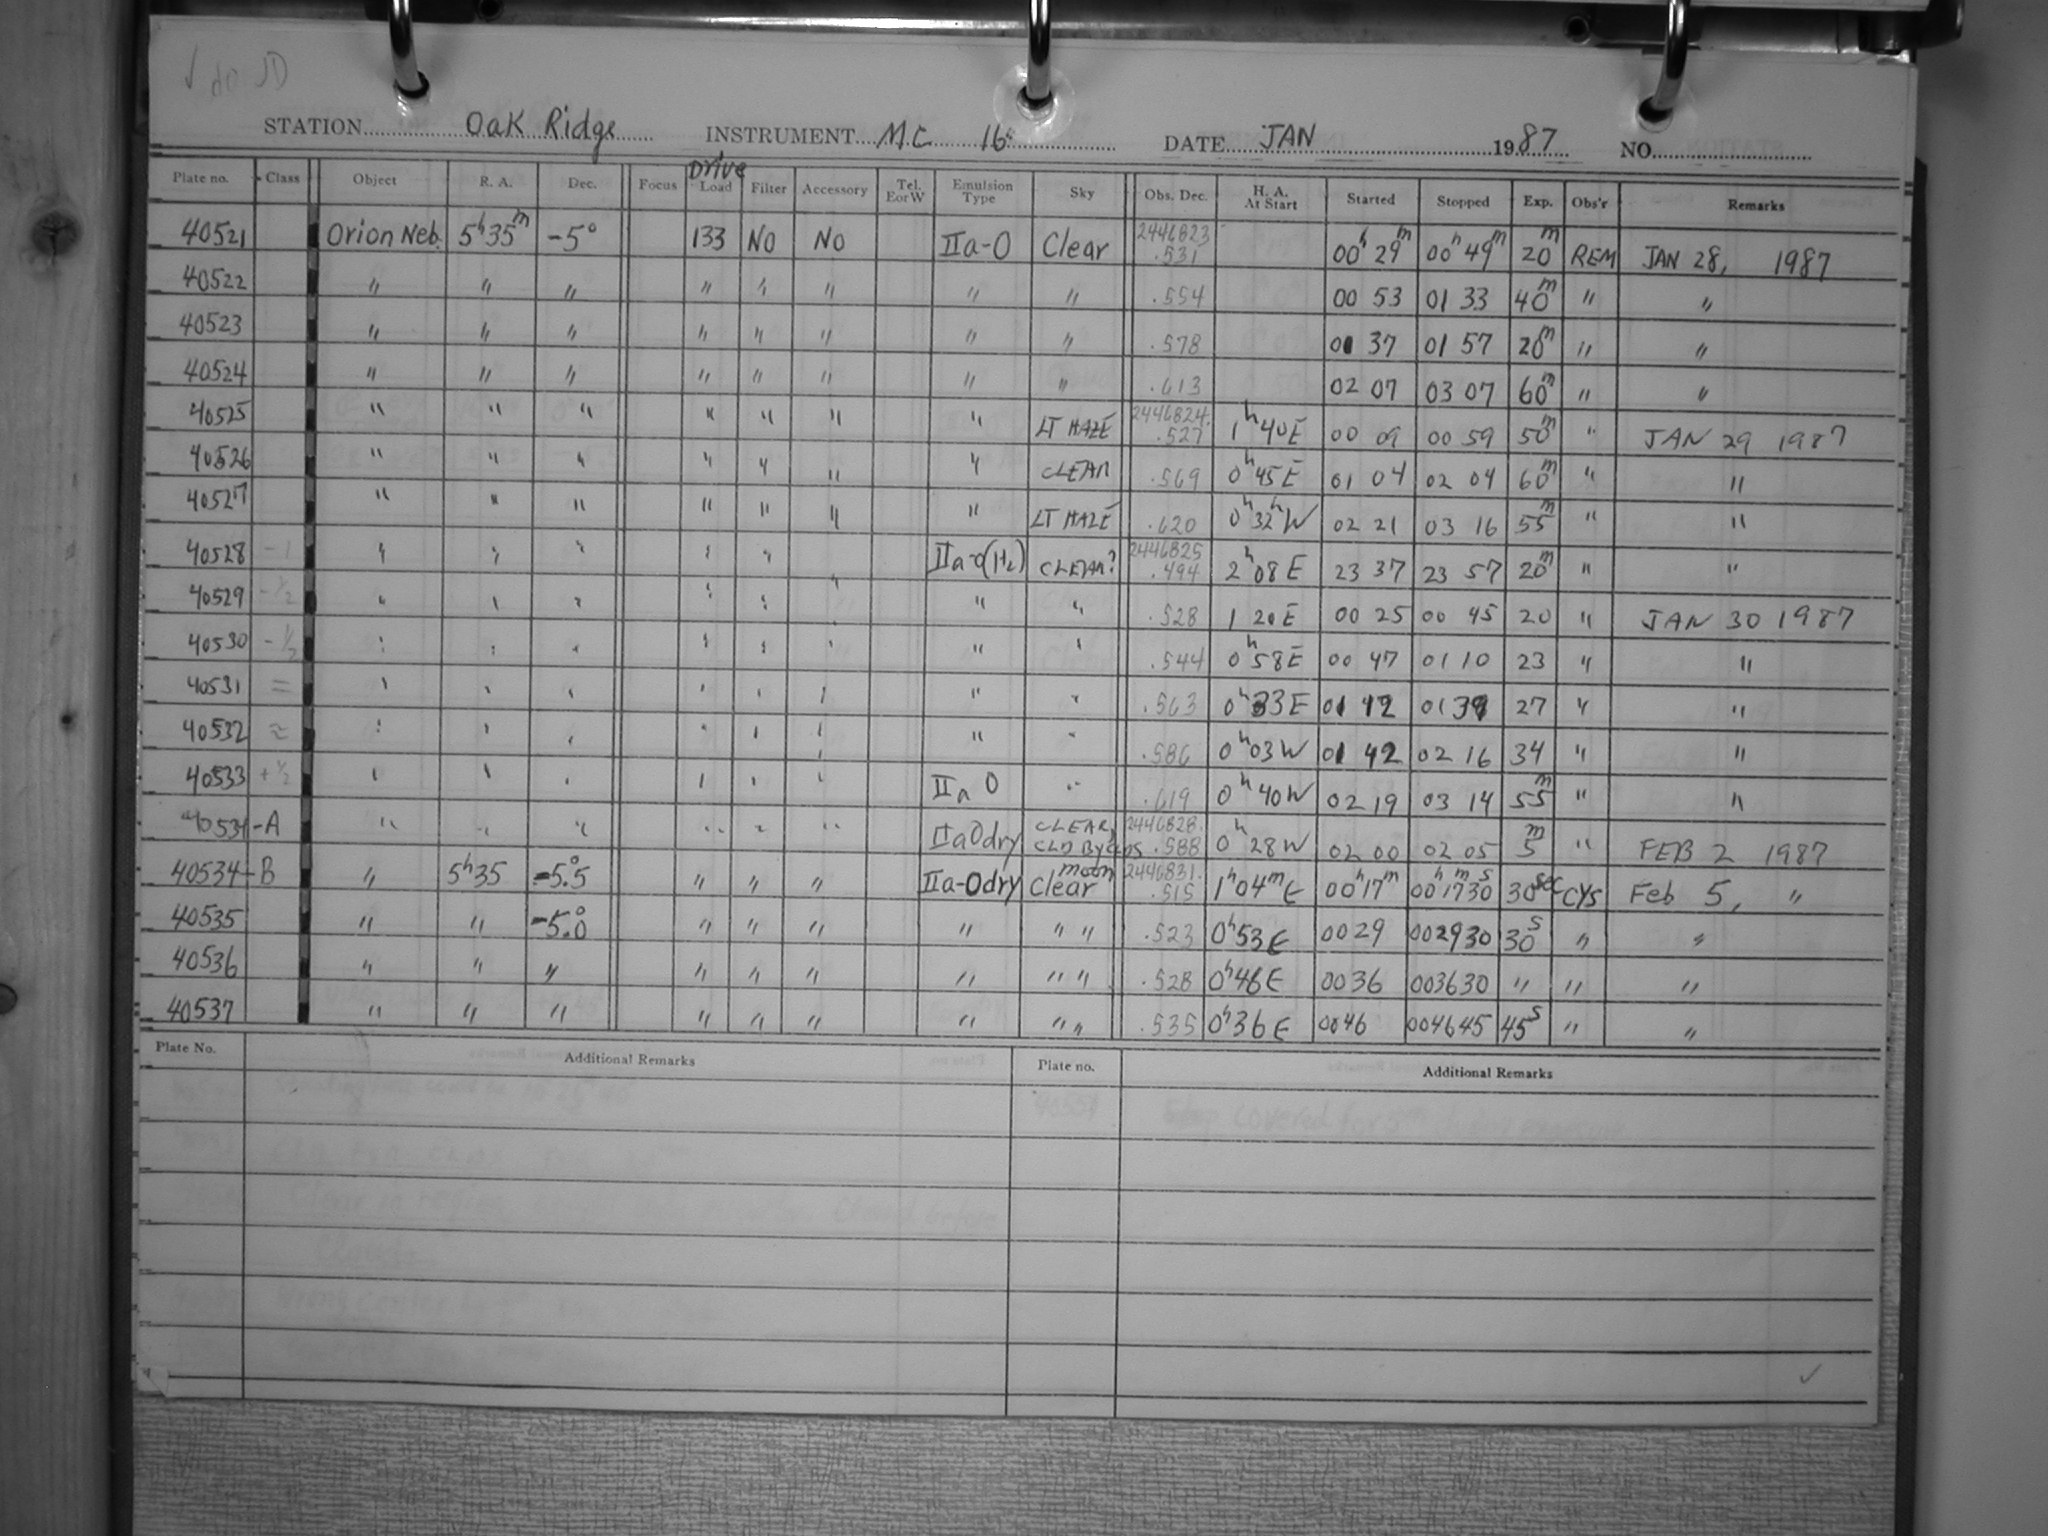 √ do JD
STATION Oak Ridge INSTRUMENT M.C 16" DATE JAN 1987 NO.
Plate no. Class Object R. A. Dec. Focus Drive Load Filter Accessory Tel. E or W Emulsion Type Sky Obs. Dec. H. A. At Start Started Stopped Exp. Obs'r Remarks
40521 Orion Neb. 5h 35m -5° 133 NO NO IIa-O Clear 2446823 .531 00h 29m 00h 49m 20m REM JAN 28, 1987
40522 " " " " " " " " .554 00 53 01 33 40m " "
40523 " " " " " " " " .578 01 37 01 57 20m " "
40524 " " " " " " " " .613 02 07 03 07 60m " "
40525 " " " " " " " LT HAZE 2446824. .527 1h 40E 00 09 00 59 50m " JAN 29 1987
40526 " " " " " " " CLEAR .569 0h 45E 01 04 02 04 60m " "
40527 " " " " " " " LT HAZE .620 0h 32h W 02 21 03 16 55m " "
40528 -1 " " " " " IIa-O(H2) CLEAR? 2446825 .494 2h 08E 23 37 23 57 20m " "
40529 -1/2 " " " " " " " " .528 1 20E 00 25 00 45 20 " JAN 30 1987
40530 -1/2 " " " " " " " " .544 0h 58E 00 47 01 10 23 " "
40531 = " " " " " " " " .563 0h 33E 01 12 01 39 27 " "
40532 ≈ " " " " " " " " .586 0h 03W 01 42 02 16 34 " "
40533 +1/2 " " " " " " IIa O " .619 0h 40W 02 19 03 14 55m " "
40534-A " " " " " " IIaOdry CLEAR, 2446828. .588 0h 28W 02 00 02 05 5m " FEB 2 1987
40534-B " 5h35 -5.°5 " " " IIa-Odry Clear moon 2446831. .515 1h04m E 00h17m 00h17m30s 30sec CYS Feb 5, "
40535 " " -5.°0 " " " " " " .523 0h53E 0029 002930 30s " "
40536 " " " " " " " " " .528 0h46E 0036 003630 " " "
40537 " " " " " " " " " .535 0h36E 0046 004645 45s " "
Plate No. Additional Remarks Plate no. Additional Remarks